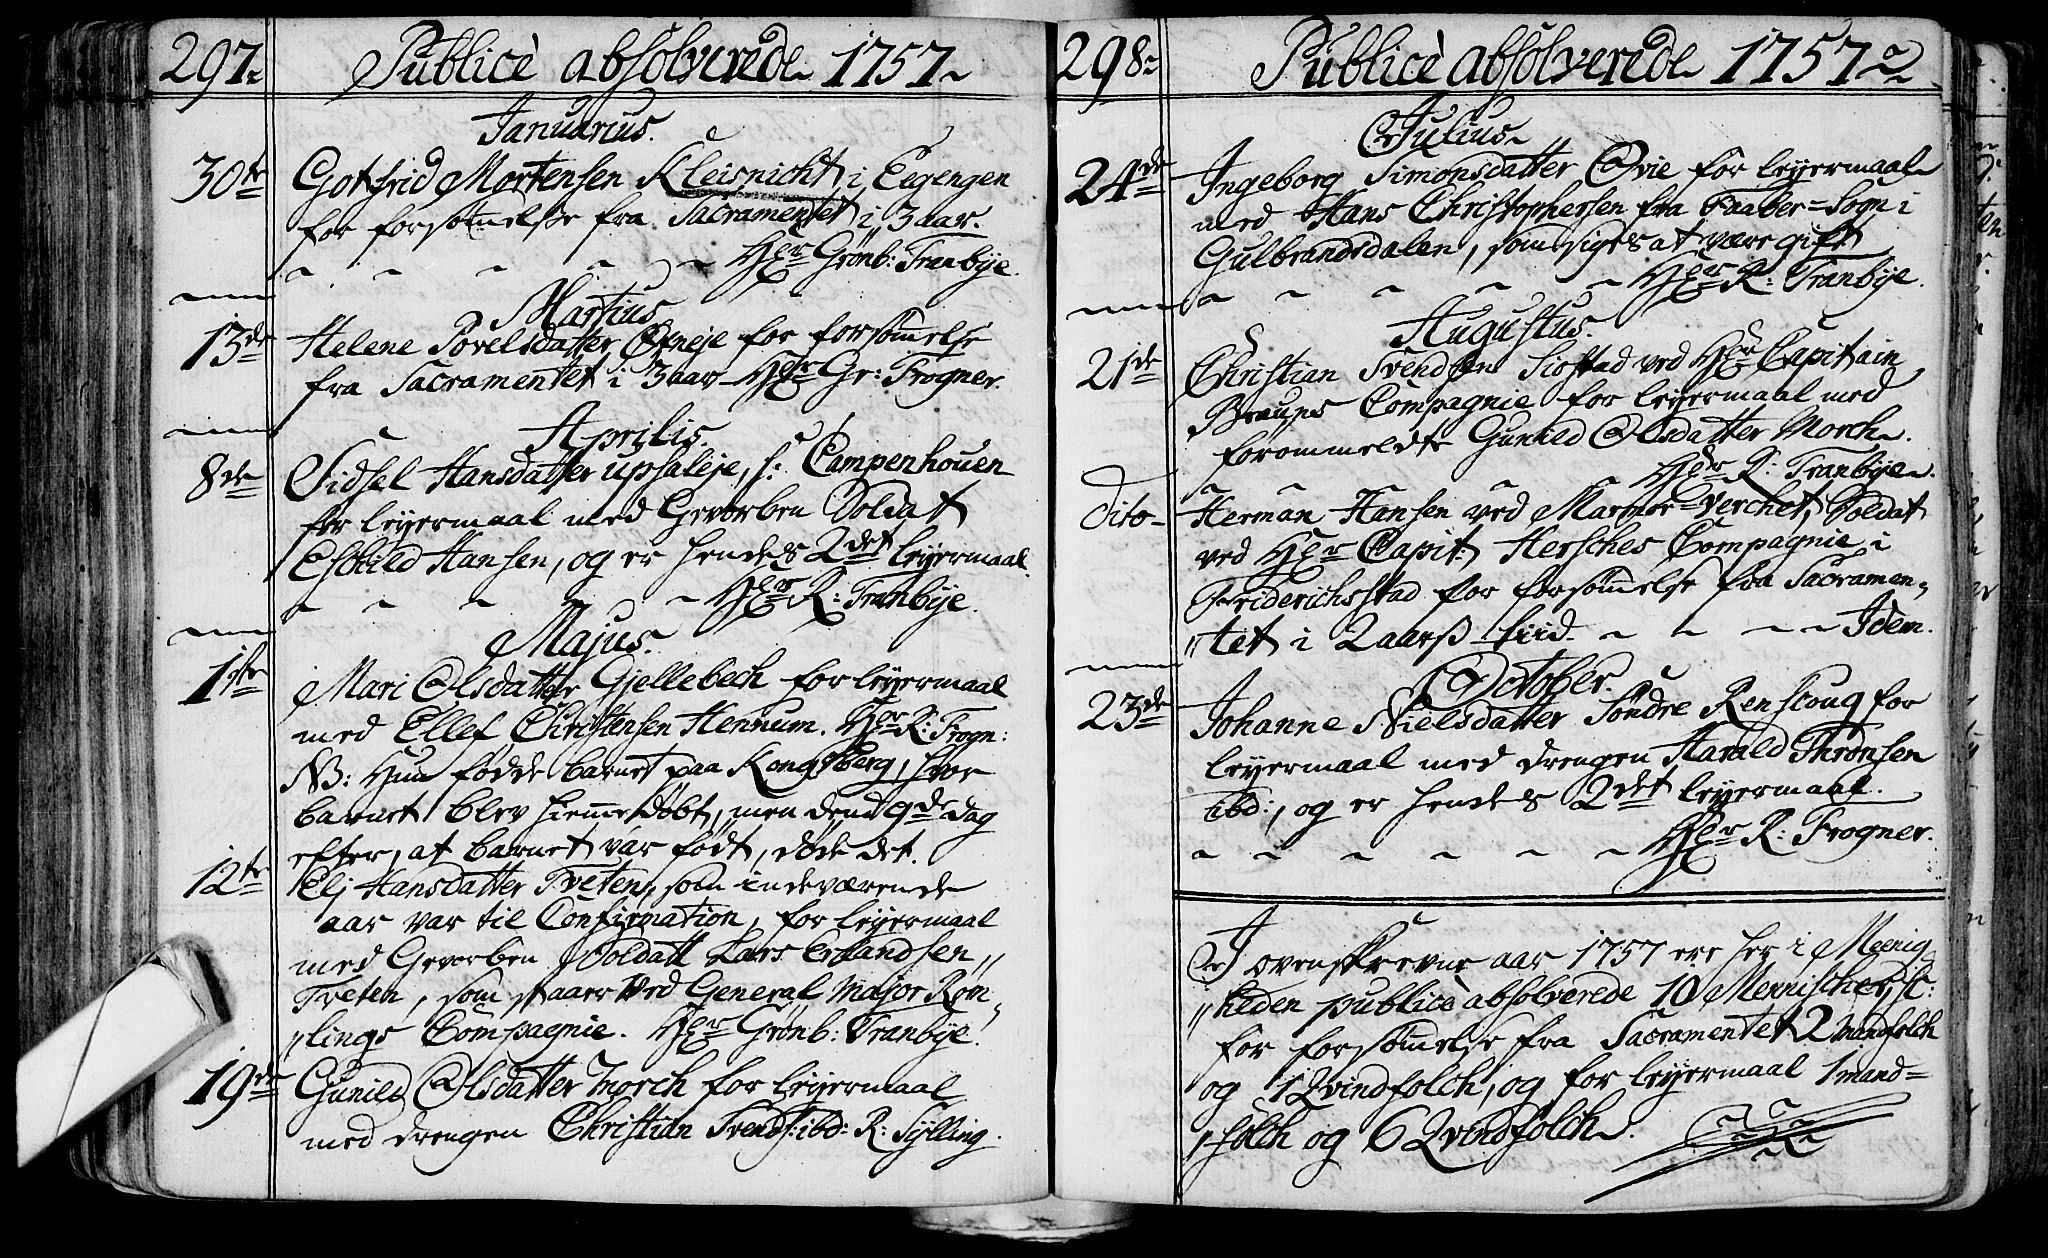 297.
Publicè absolverede 1757.
Januarius.
30te Gotfrid Mortensen Kleisnicht i Eegengen
for forsømelse fra Sacramentet i 3 aar.
Hr Grønb: Tranbye.
Martius.
13de Helene Povelsdatter Øfneje for forsømelse
fra Sacramentet i 3 aar Hr Gr: Frogner.
Aprilis.
8de Sidsel Hansdatter upsaleje, h: Campenhouen
for leyermaal med Gevorben Soldat
Eskild Hansen, og er hendes 2det leyermaal.
Hr R: Tranbye.
Majus.
1ste Mari Olsdatter Gjellebech for leyermaal
med Ellef Christensen Hennum. Hr R: Frogn:
NB: Hun fødde barnet paa Kongsberg, hvor
barnet blev hiemedøbt, men dend 9de dag
efter, at barnet var født, døde det.
12te Elj Hansdatter Tveten, som indeværende
aar var til Confirmation, for leyermaal
med Gevorben Soldatt Lars Erlandsen
Tveten, som staaer ved General Major Røm-
lings Compagnie. Hr Grønb: Tranbye.
19de Gunild Olsdatter Morch for leyermaal
med drengen Christian Svends: ibd: R: Sylling.
298.
Publicè absolverede 1757
Julius
24de Ingeborg Simonsdatter Øvie for leyermaal
med Hans Christophersen fra Faaber-Sogn i
Gulbrandsdalen, som siges at være gift
Hr R: Tranbye.
Augustus.
21de Christian Svendsen Siostad ved Hr Capitain
Bruuns Compagnie for leyermaal med
forommeldte Gunild Olsdatter Morch.
Hr R: Tranbye.
Dito Herman Hansen ved Marmor-Verchet, Soldat
ved Hr Capit: Hersches Compagnie i
Friderichsstad for forsømelse fra Sacramen-
tet i 2 aarß tiid. Idem.
October.
23de Johanne Nielsdatter Søndre Renscoug for
leyermaal med drengen Harald Thronsen
ibd:, og er hendes 2det leyermaal.
Hr R: Frogner.
I ovenskrevne aar 1757 ere her i Meenig
heden publicè absolverede 10 Mennischer, sc:
for forsømelse fra Sacramentet 2 mandfolch
og 1 Qvindfolch, og for leyermaal 1 mand-
folch og 6 Qvindfolch.